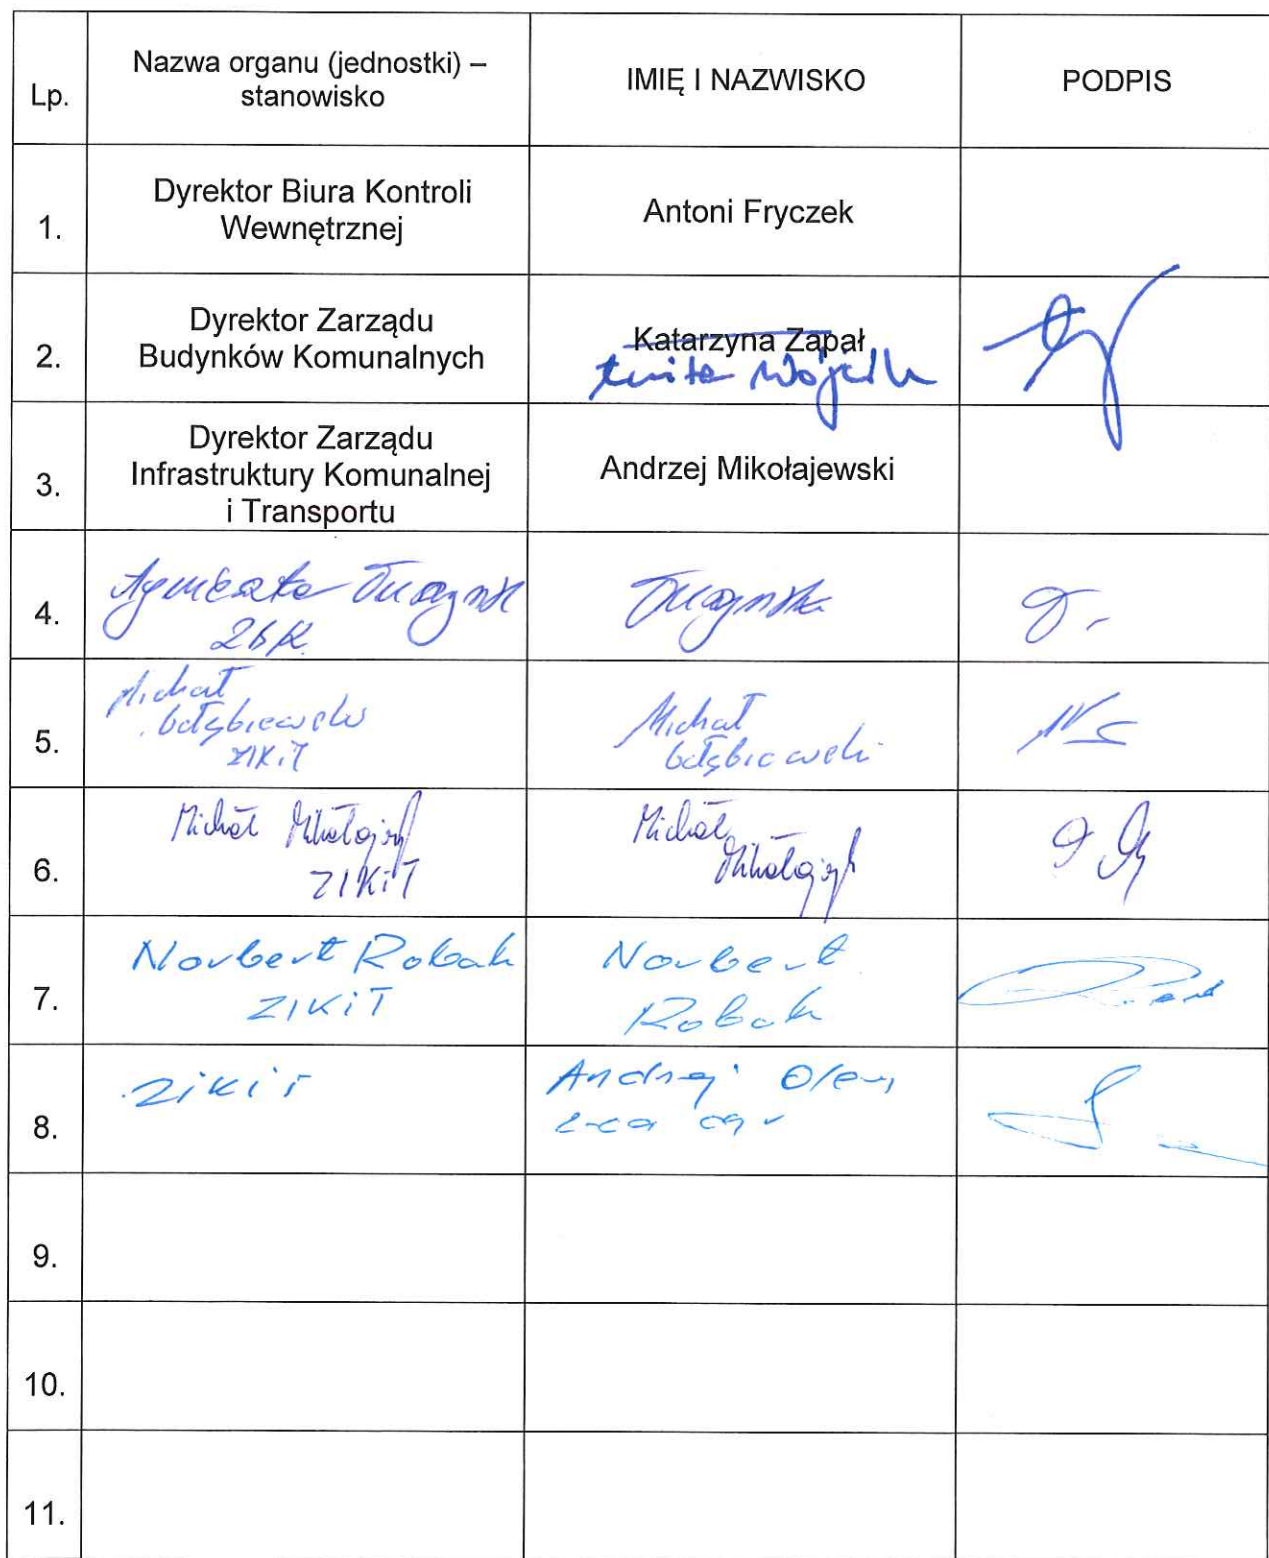 Lp.
Nazwa organu (jednostki) –
stanowisko
IMIĘ I NAZWISKO
PODPIS
1.
Dyrektor Biura Kontroli
Wewnętrznej
Antoni Fryczek
2.
Dyrektor Zarządu
Budynków Komunalnych
Katarzyna Zapał
Wójcik
3.
Dyrektor Zarządu
Infrastruktury Komunalnej
i Transportu
Andrzej Mikołajewski
4.
Agnieszka
ZBK
5.
Michał
Gołębiewski
ZIKiT
Michał
Gołębiewski
6.
Michał Mikołajczyk
ZIKiT
Michał
Mikołajczyk
7.
Norbert Robak
ZIKiT
Norbert
Robak
8.
ZIKiT
Andrzej
9.
10.
11.